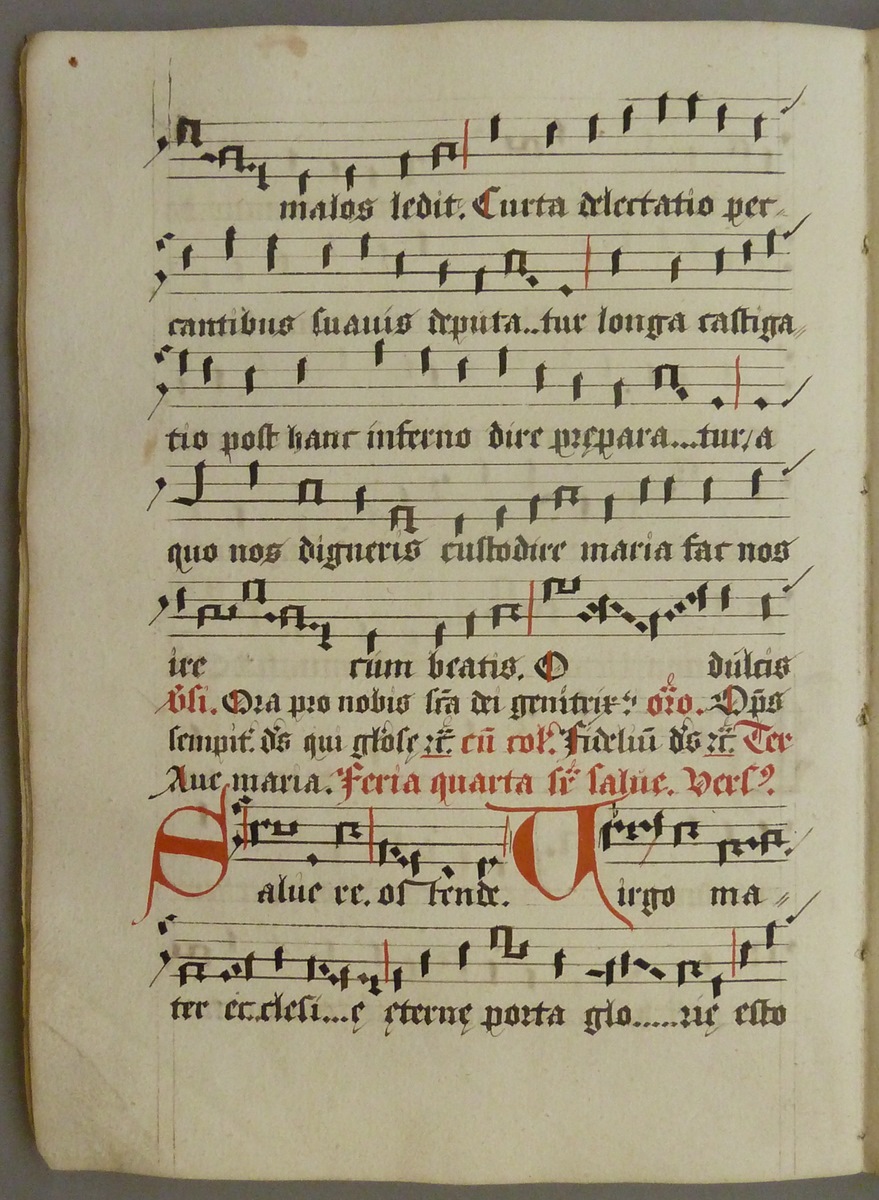 malos ledit. Curta delectatio pec-
cantibus suauis deputa..tur longa castiga
tio post hanc inferno dire prępara....tur, a
quo nos digneris custodire maria fac nos
ire cum beatis. O dulcis
Vsi. Ora pro nobis scā dei genitrix? oro. Oṗs
sempit. ds qui glose rc. cū col. Fideliū ds rc. Ter
Aue maria. Feria quarta sr salue. Vers⁹.
Salue re. os tende. Virgo ma-
ter ec.clesi...ę ęternę porta glo.....rię esto